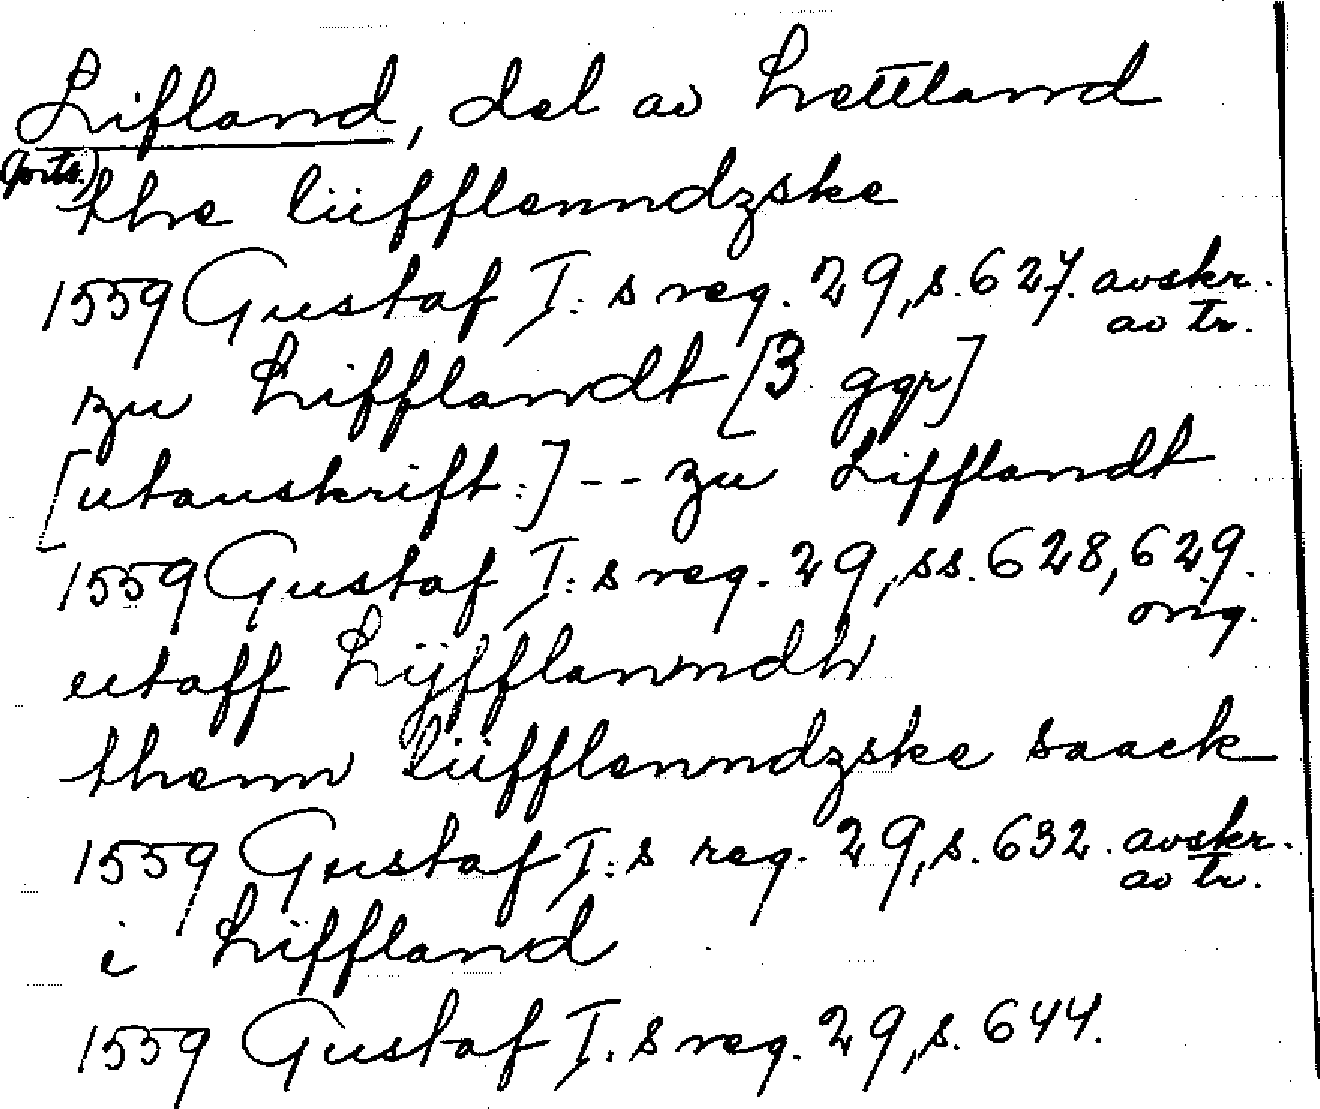 Lifland, del av Lettland
(forts.)
the lüfflenndzske
1559 Gustaf I:s reg. 29, s. 627. avskr.
av tr.
zu Lifflandt [3 ggr]
[utanskrift:] -- zu Lifflandt
1559 Gustaf I:s reg. 29, ss. 628, 629.
orig.
utaff Lÿfflanndh
thenn lüfflenndzske saack
1559 Gustaf I:s reg. 29, s. 632. avskr.
av tr.
i Liffland
1559 Gustaf I:s reg. 29, s. 644.